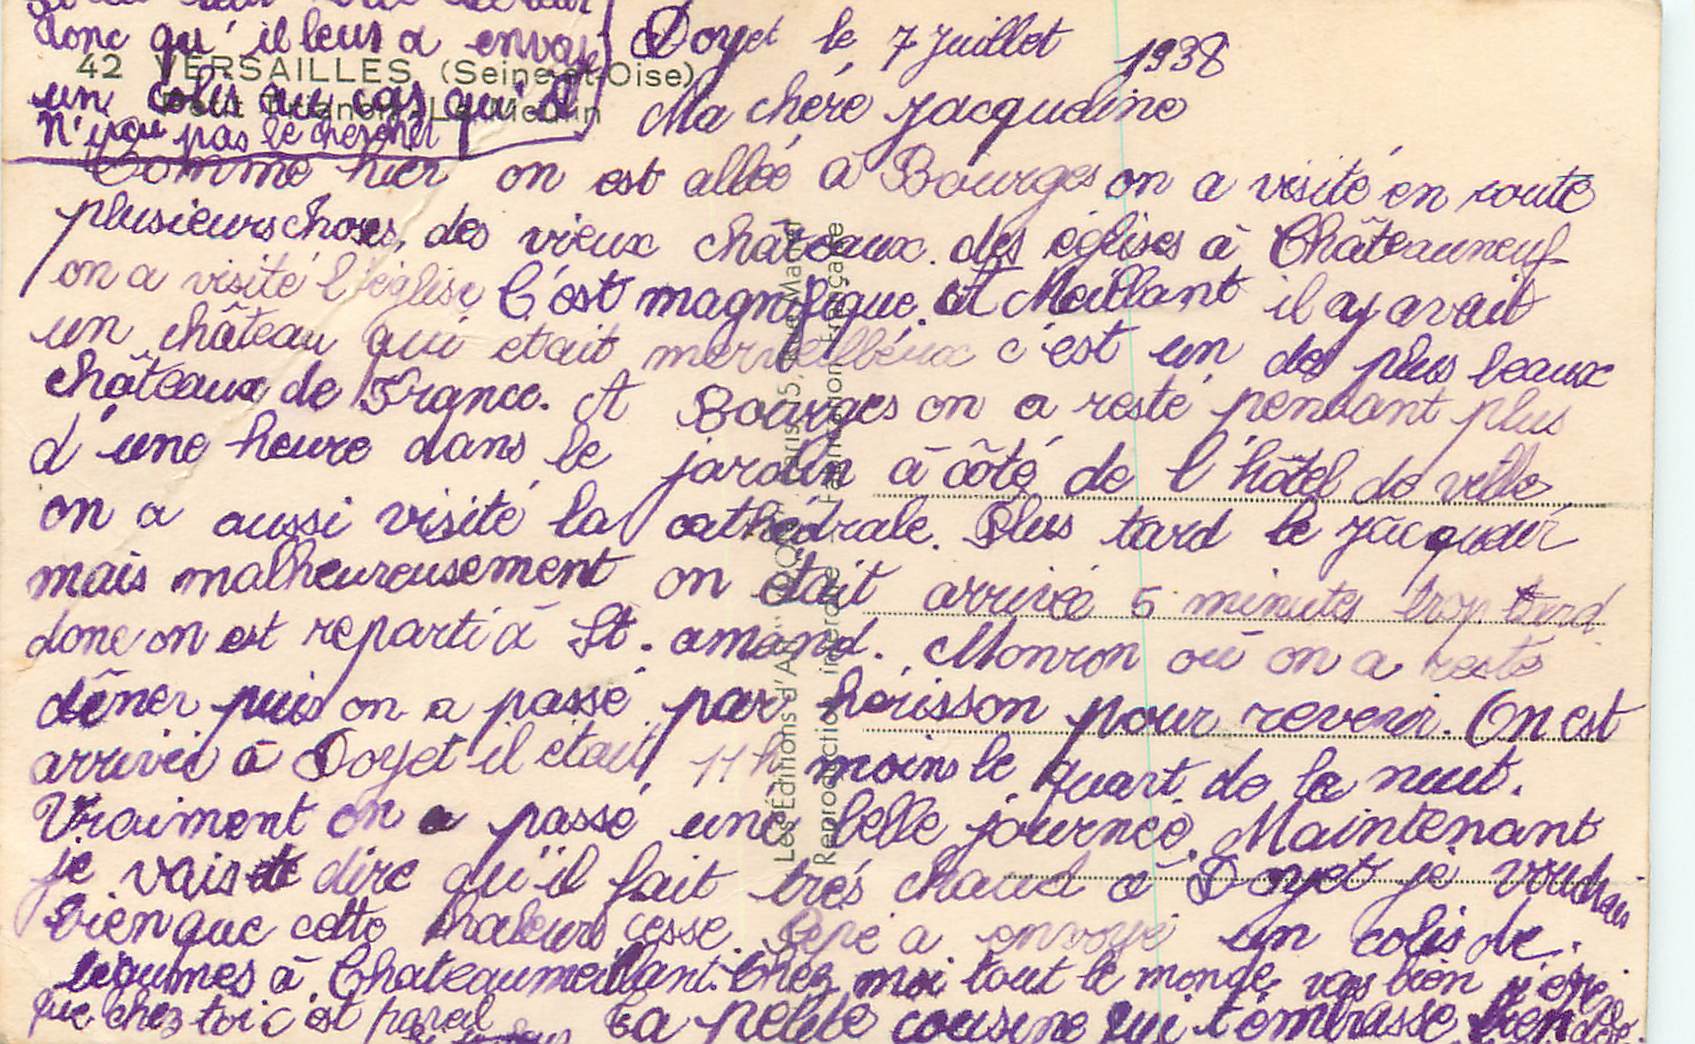 donc qu'il leur a envoyé
42 VERSAILLES (Seine-et-Oise)
un colis au cas qu'il
n' pas le chercher
Doyet le 7 Juillet 1938
Ma chère Jacqueline
Comme hier on est allée à Bourges on a visité en route
plusieurs choses, des vieux châteaux. des églises à Châteauneuf
on a visité l'église C'est magnifique. A Meillant il y avait
un château qui etait merveilleux c'est un des plus beaux
châteaux de France. A Bourges on a resté pendant plus
d'une heure dans le jardin à côté de l'hôtel de ville
on a aussi visité la cathédrale. Plus tard le
mais malheureusement on était arrivée 5 minutes trop tard
donc on est reparti à St. amand. Monron où on a resté
dîner puis on a passé par hérisson pour revenir. On est
arrivée à Doyet il était 11 h moins le quart de la nuit.
Vraiment on a passé une belle journée. Maintenant
je vais te dire qu'il fait très chaud à Doyet je voudrais
bien que cette chaleurs cesse. Pépé a envoyé un colis de
légumes à Chateaumeillant. Chez moi tout le monde vas bien
que chez toi c'est pareil Ta petite cousine qui t'embrasse bien
Les Éditions d'Art
Reproduction interdite Fabrication Française